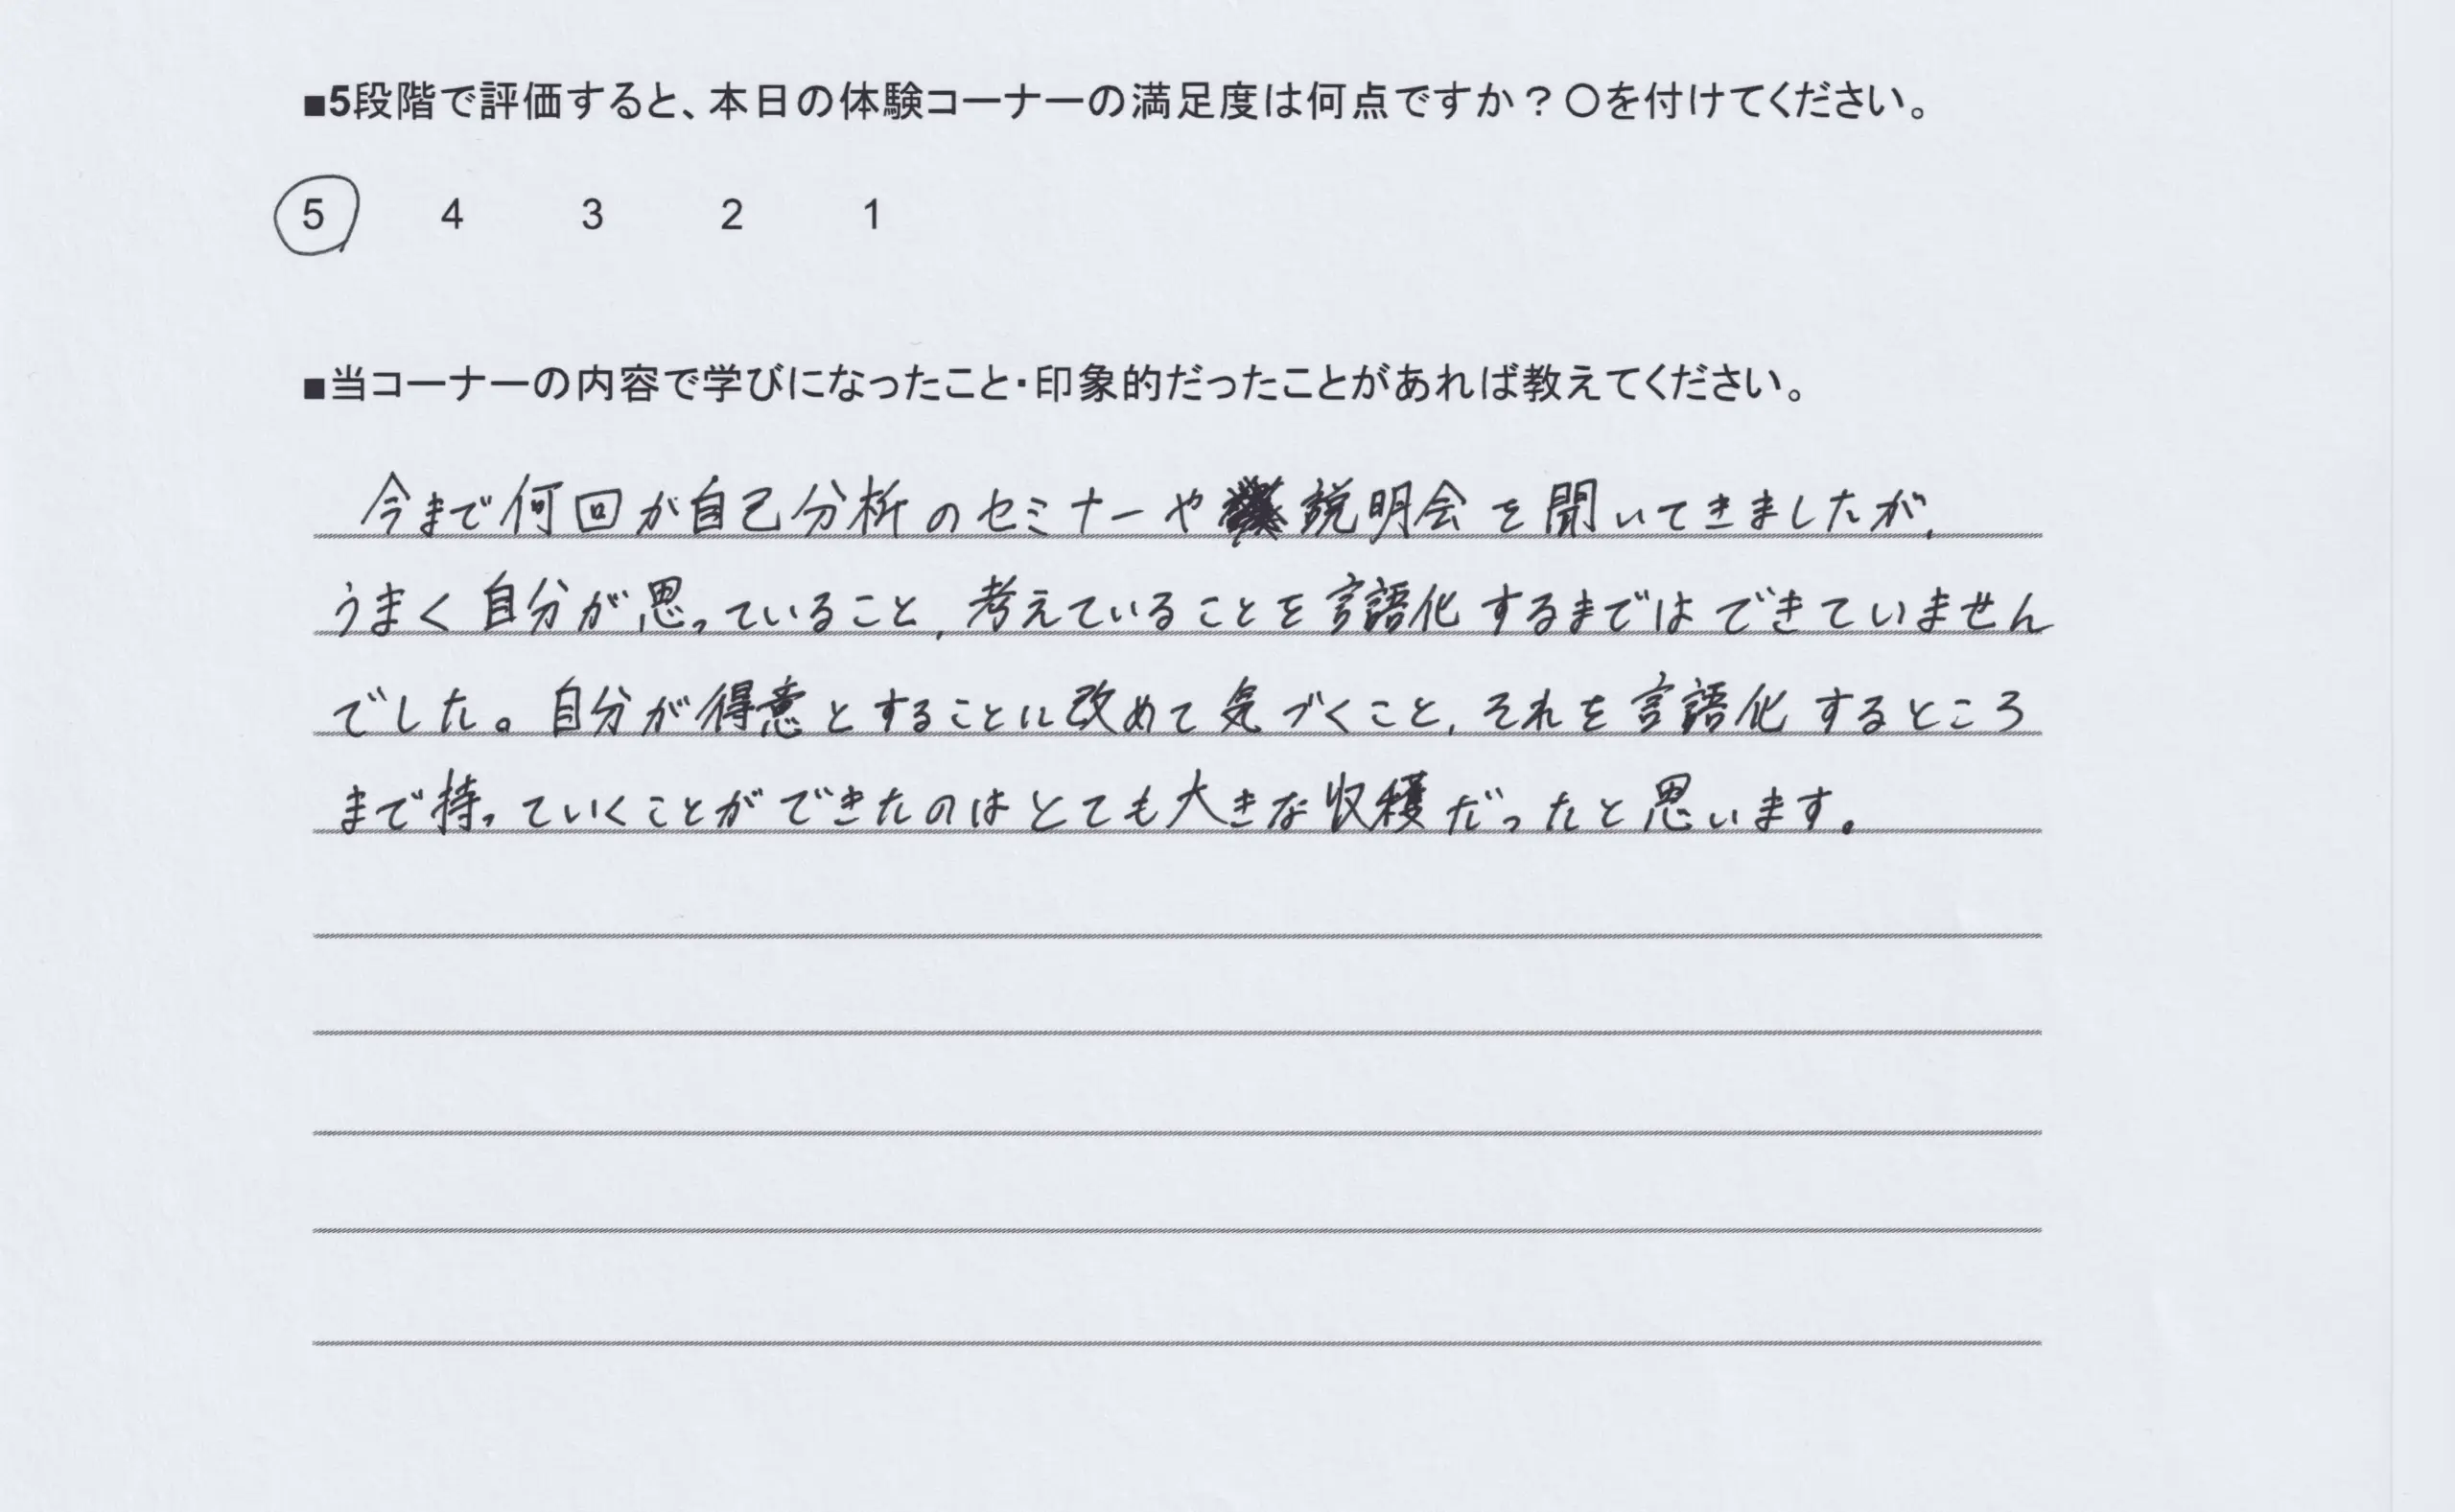 ■5段階で評価すると、本日の体験コーナーの満足度は何点ですか？〇を付けてください。
5 4 3 2 1
■当コーナーの内容で学びになったこと・印象的だったことがあれば教えてください。
今まで何回か自己分析のセミナーや説明会を聞いてきましたが,
うまく自分が思っていること,考えていることを言語化するまではできていません
でした。自分が得意とすることに改めて気づくこと,それを言語化するところ
まで持っていくことができたのはとても大きな収穫だったと思います。